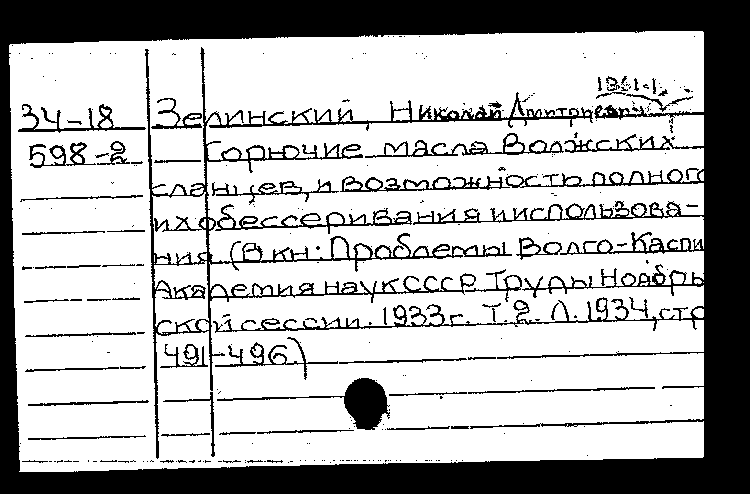 1861-1
34-18 Зелинский, Николай Дмитриевич
598-2 Горючие масла Волжских
сланцев, и возможность полног
их обессеривания и использова-
ния (В кн: Проблемы Волго-Каспи
Академия наук СССР Труды Ноябрь
ской сессии. 1933г. Т.2. Л. 1934, стр
491-496.)